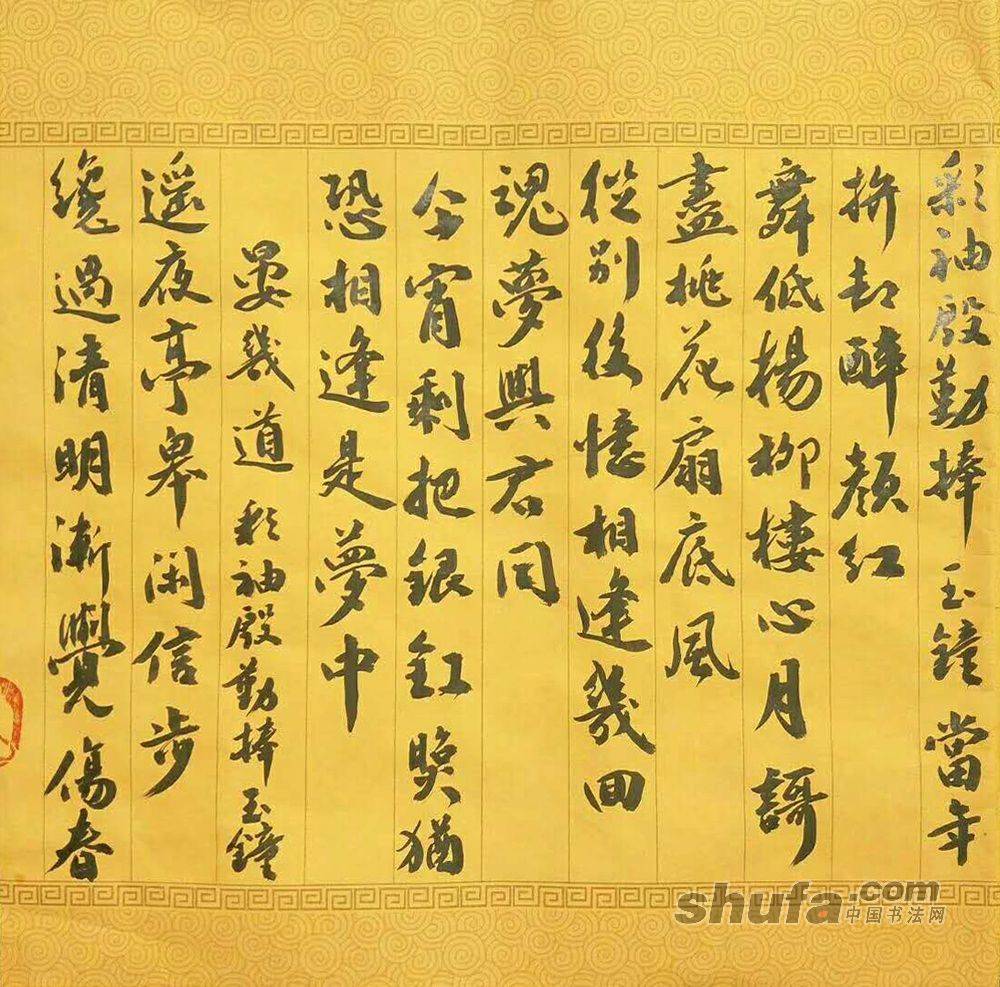 彩袖殷勤捧玉鐘當年
拚却醉顏紅
舞低楊柳樓心月謌
盡桃花扇底風
從別後憶相逢幾回
魂夢與君同
今宵剩把銀釭照猶
恐相逢是夢中
晏幾道彩袖殷勤捧玉鐘
遥夜亭皋閑信步
纔過清明漸覺傷春
shufa.com
中国书法网